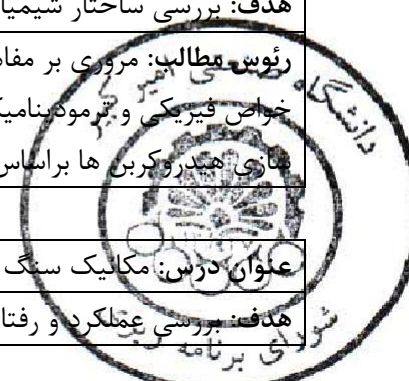 هدف: بررسی ساختار شیمیا
رئوس مطالب: مروری بر مفاه
خواص فیزیکی و ترمودینامیک
سازی هیدروکربن ها براساس
عنوان درس: مکانیک سنگ
هدف: بررسی عملکرد و رفتا
دانشگاه صنعتی امیر کبیر
شورای برنامه ریزی